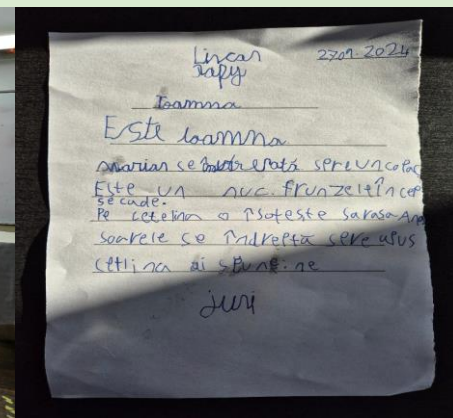 Lincan 27.09.2024
Toamna
Este toamna.
marian se îndreptă spre un colac
Este un nuc. Frunzele încep
se cade.
Pe cetelina o însoteste sarasa Ane
soarele se îndreptă spre apus
cetlina ai spune.ne
juri